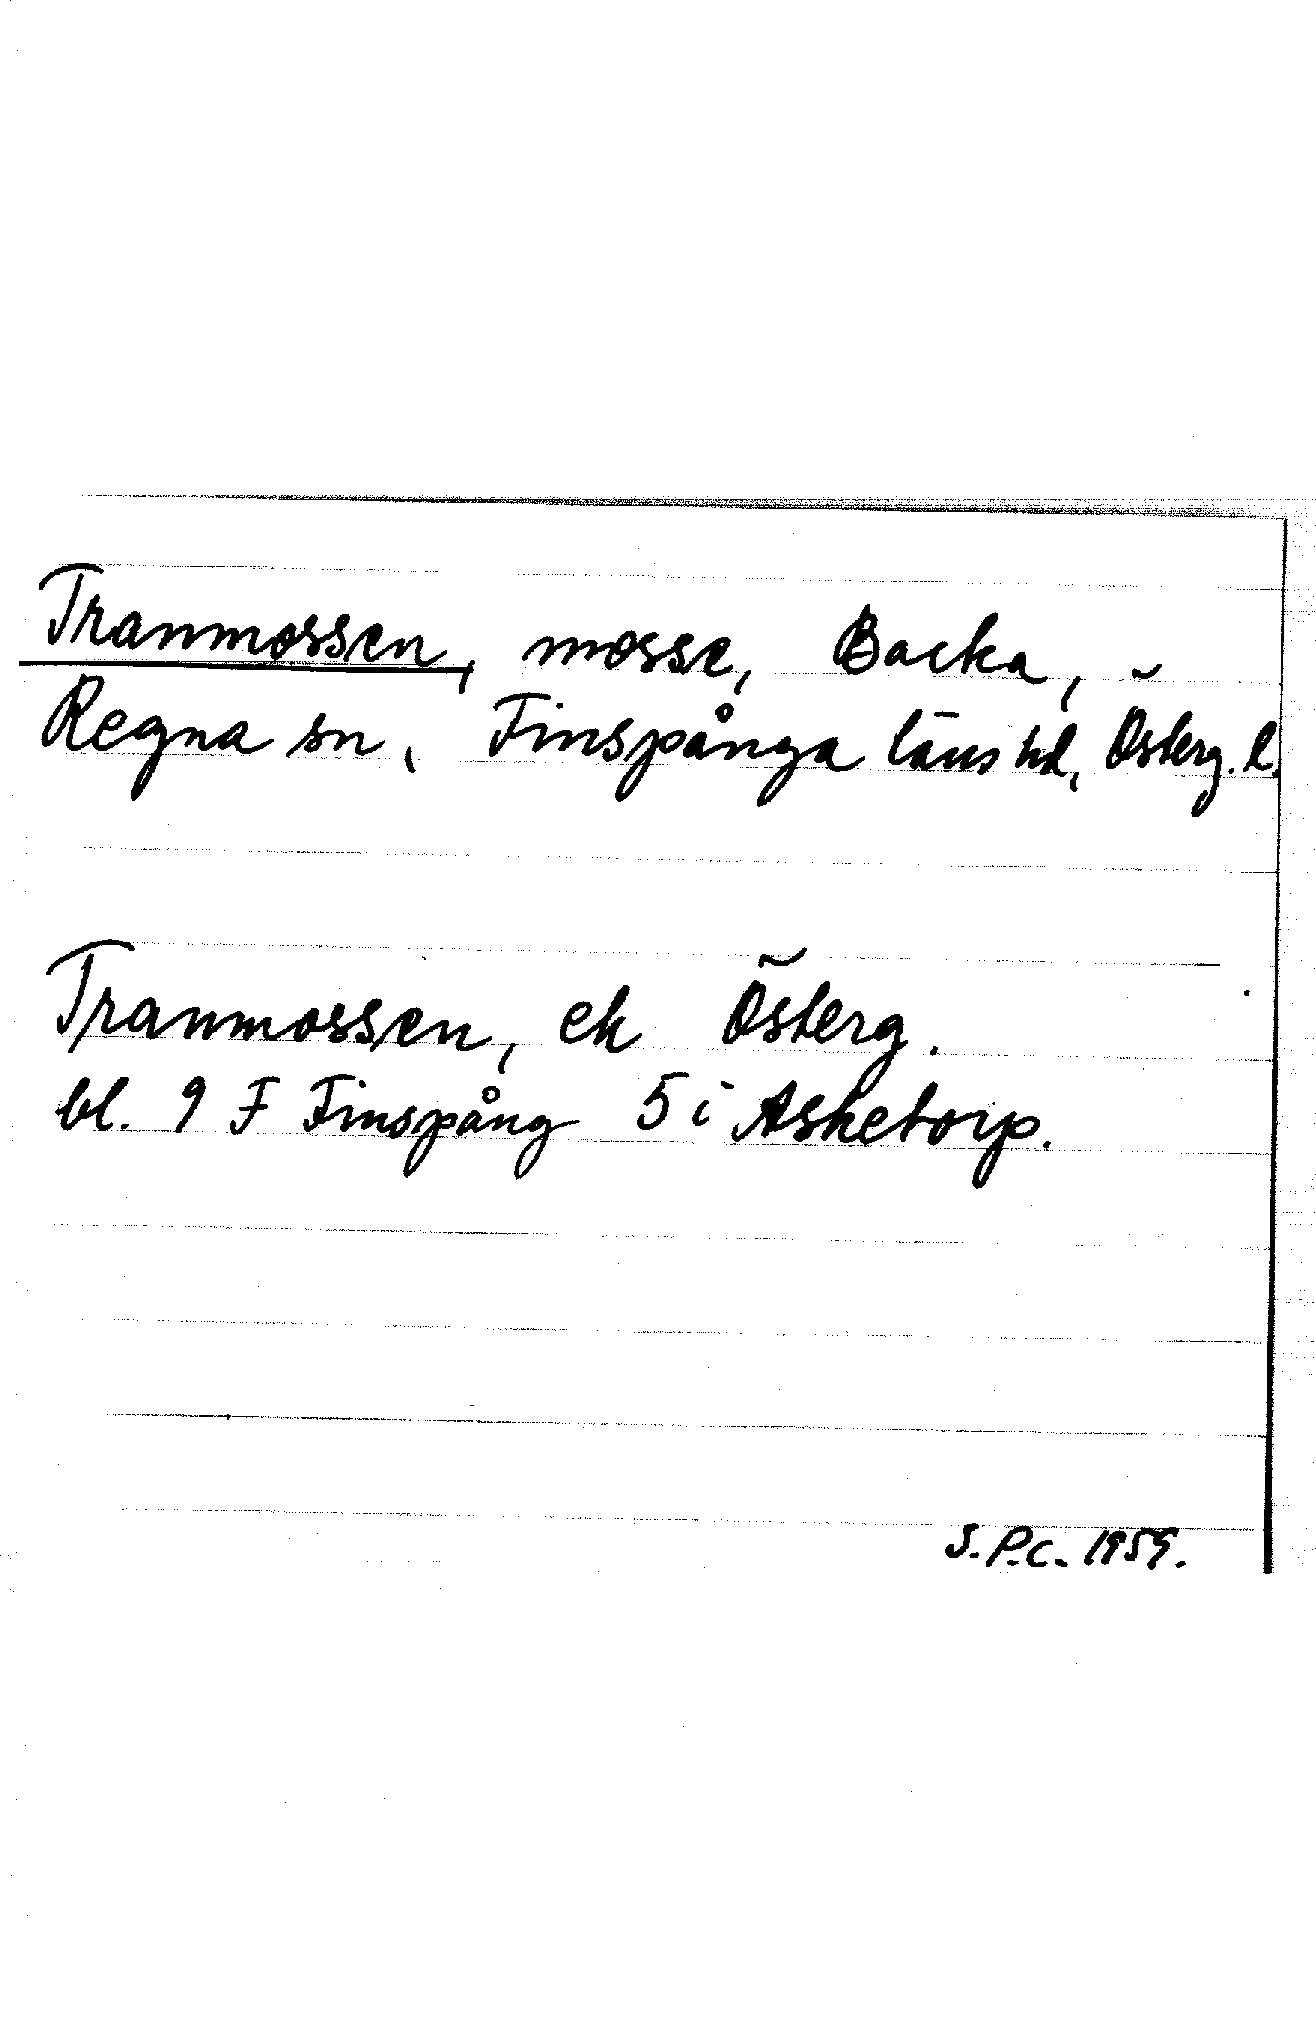 Tranmossen, mosse, Backa,
Regna sn, Finspånga läns hd, Österg. l.
Tranmossen, ek Österg.
bl. 9 F Finspång 5 i Asketorp.
S.P.C. 1959.